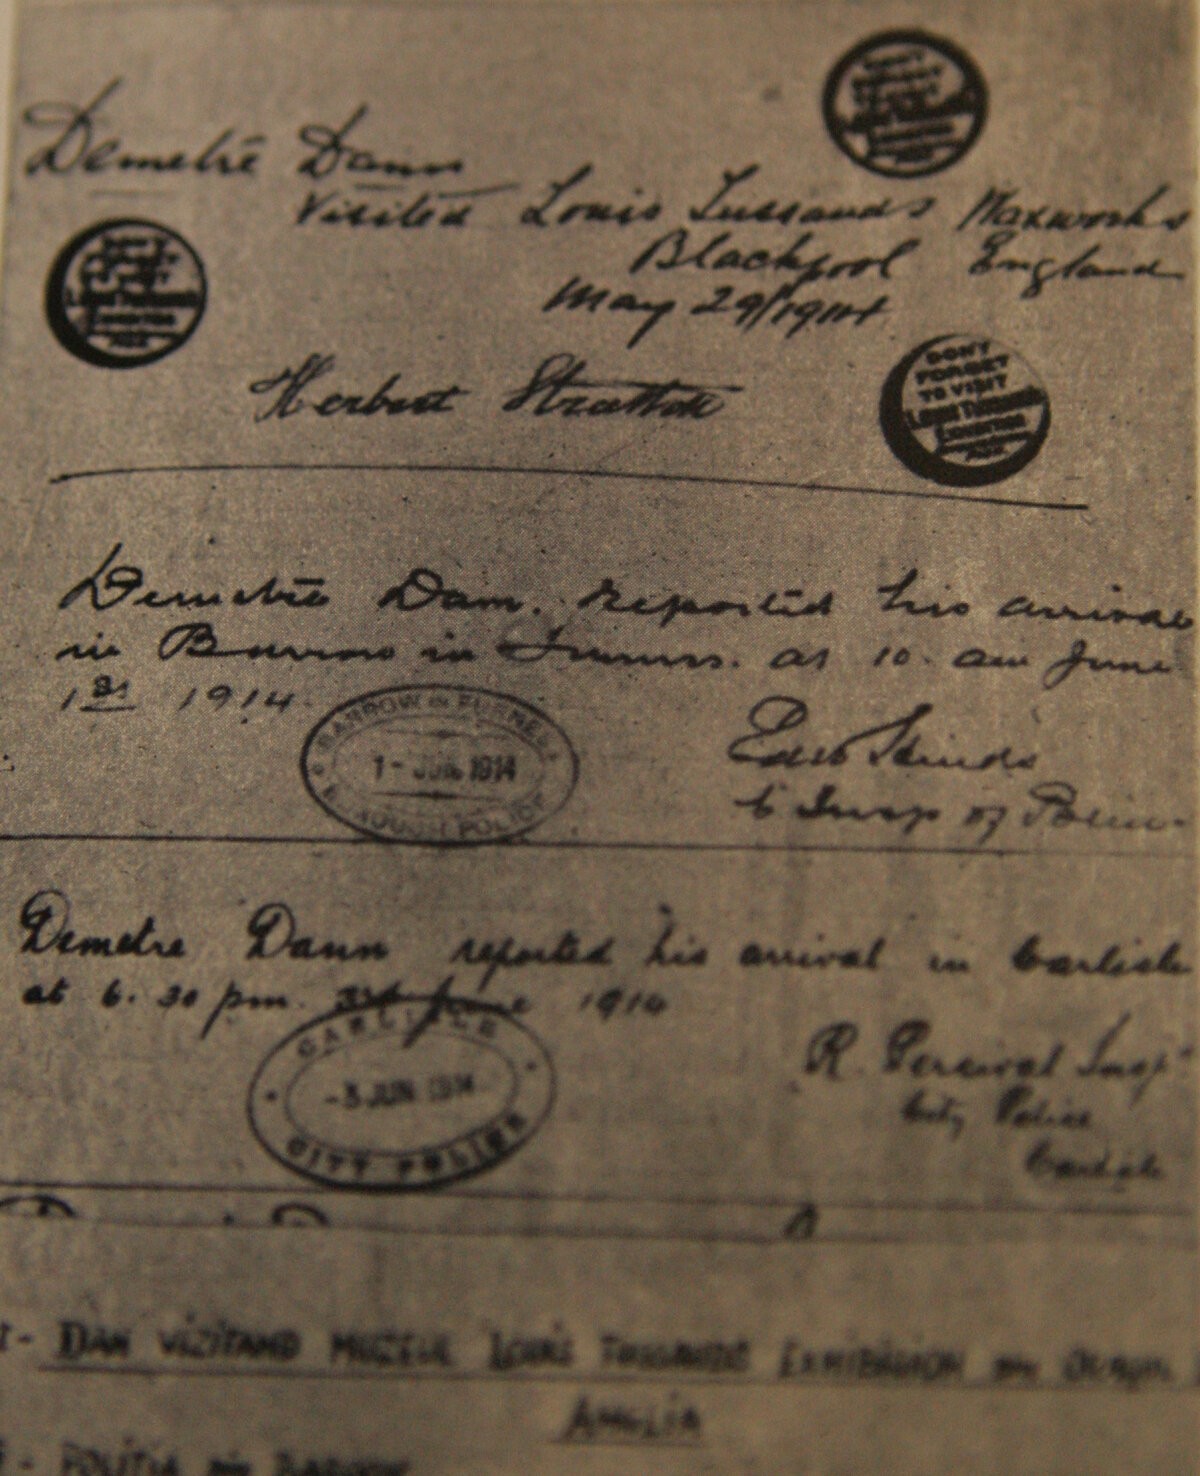 Demetrē Dann
Visited Louis Tussauds Waxworks
Blackpool England
May 29/1914
DON'T
FORGET
TO VISIT
Louis Tussauds
Exhibition
Herbert
Demetrē Dann. reported his arrival
in Barrow in Furness. at 10. am June
1st 1914.
BARROW IN FURNESS
1 - JUN 1914
BOROUGH POLICE
Insp of Police
Demetre Dann reported his arrival in Carlisle
at 6.30 pm. 3rd June 1914
CARLISLE
- 3 JUN 1914
CITY POLICE
R. Percival Insp
City Police
Carlisle
DAN VIZITAND MUZEUL LOUIS TUSSAUDS EXHIBITION DIN
ANGLIA
POLITIA DIN BAROW